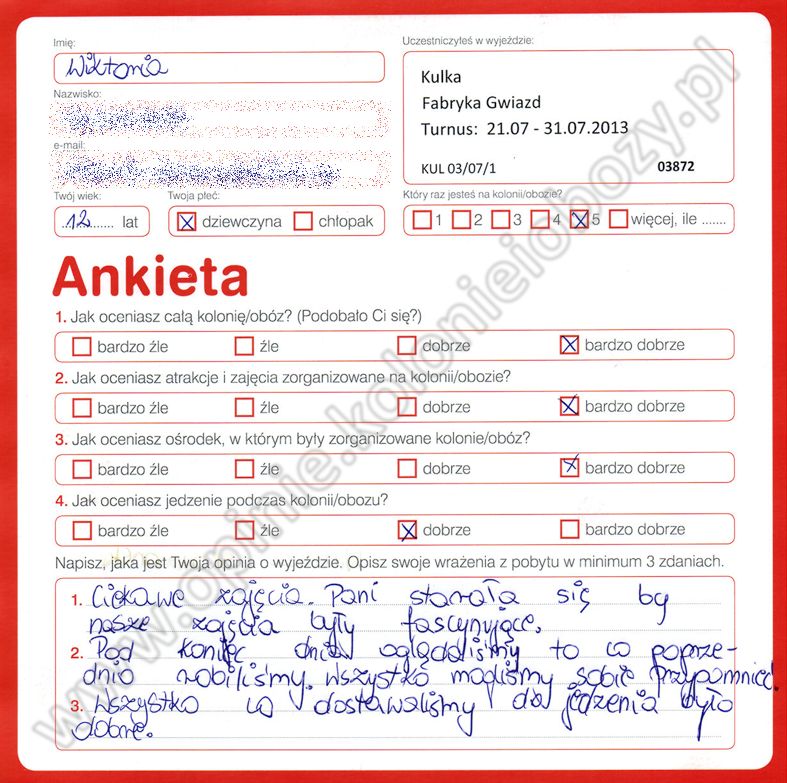 Imię:
Wiktoria
Nazwisko:
e-mail:
Twój wiek:
12 lat
Twoja płeć:
dziewczyna chłopak
Uczestniczyłeś w wyjeździe:
Kulka
Fabryka Gwiazd
Turnus: 21.07 - 31.07.2013
KUL 03/07/1 03872
Który raz jesteś na kolonii/obozie?
1 2 3 4 5 więcej, ile .......
Ankieta
1. Jak oceniasz całą kolonię/obóz? (Podobało Ci się?)
bardzo źle źle dobrze bardzo dobrze
2. Jak oceniasz atrakcje i zajęcia zorganizowane na kolonii/obozie?
bardzo źle źle dobrze bardzo dobrze
3. Jak oceniasz ośrodek, w którym były zorganizowane kolonie/obóz?
bardzo źle źle dobrze bardzo dobrze
4. Jak oceniasz jedzenie podczas kolonii/obozu?
bardzo źle źle dobrze bardzo dobrze
Napisz, jaka jest Twoja opinia o wyjeździe. Opisz swoje wrażenia z pobytu w minimum 3 zdaniach.
1. Ciekawe zajęcia. Pani starała się by
nasze zajęcia były fascynujące.
2. Pod koniec dnia oglądaliśmy to co poprze-
dnio robiliśmy. Wszystko mogliśmy sobie przypomnieć.
3. Wszystko co dostawaliśmy do jedzenia było
dobre.
www.opinie.kolonieiobozy.pl